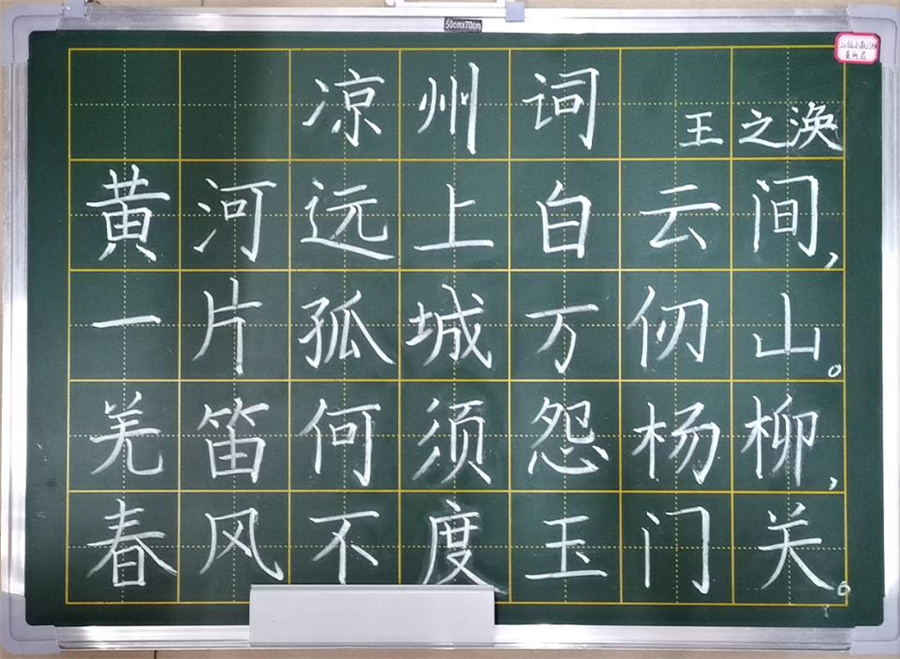 50cmx70cm
凉州词
王之涣
黄河远上白云间,
一片孤城万仞山。
羌笛何须怨杨柳,
春风不度玉门关。